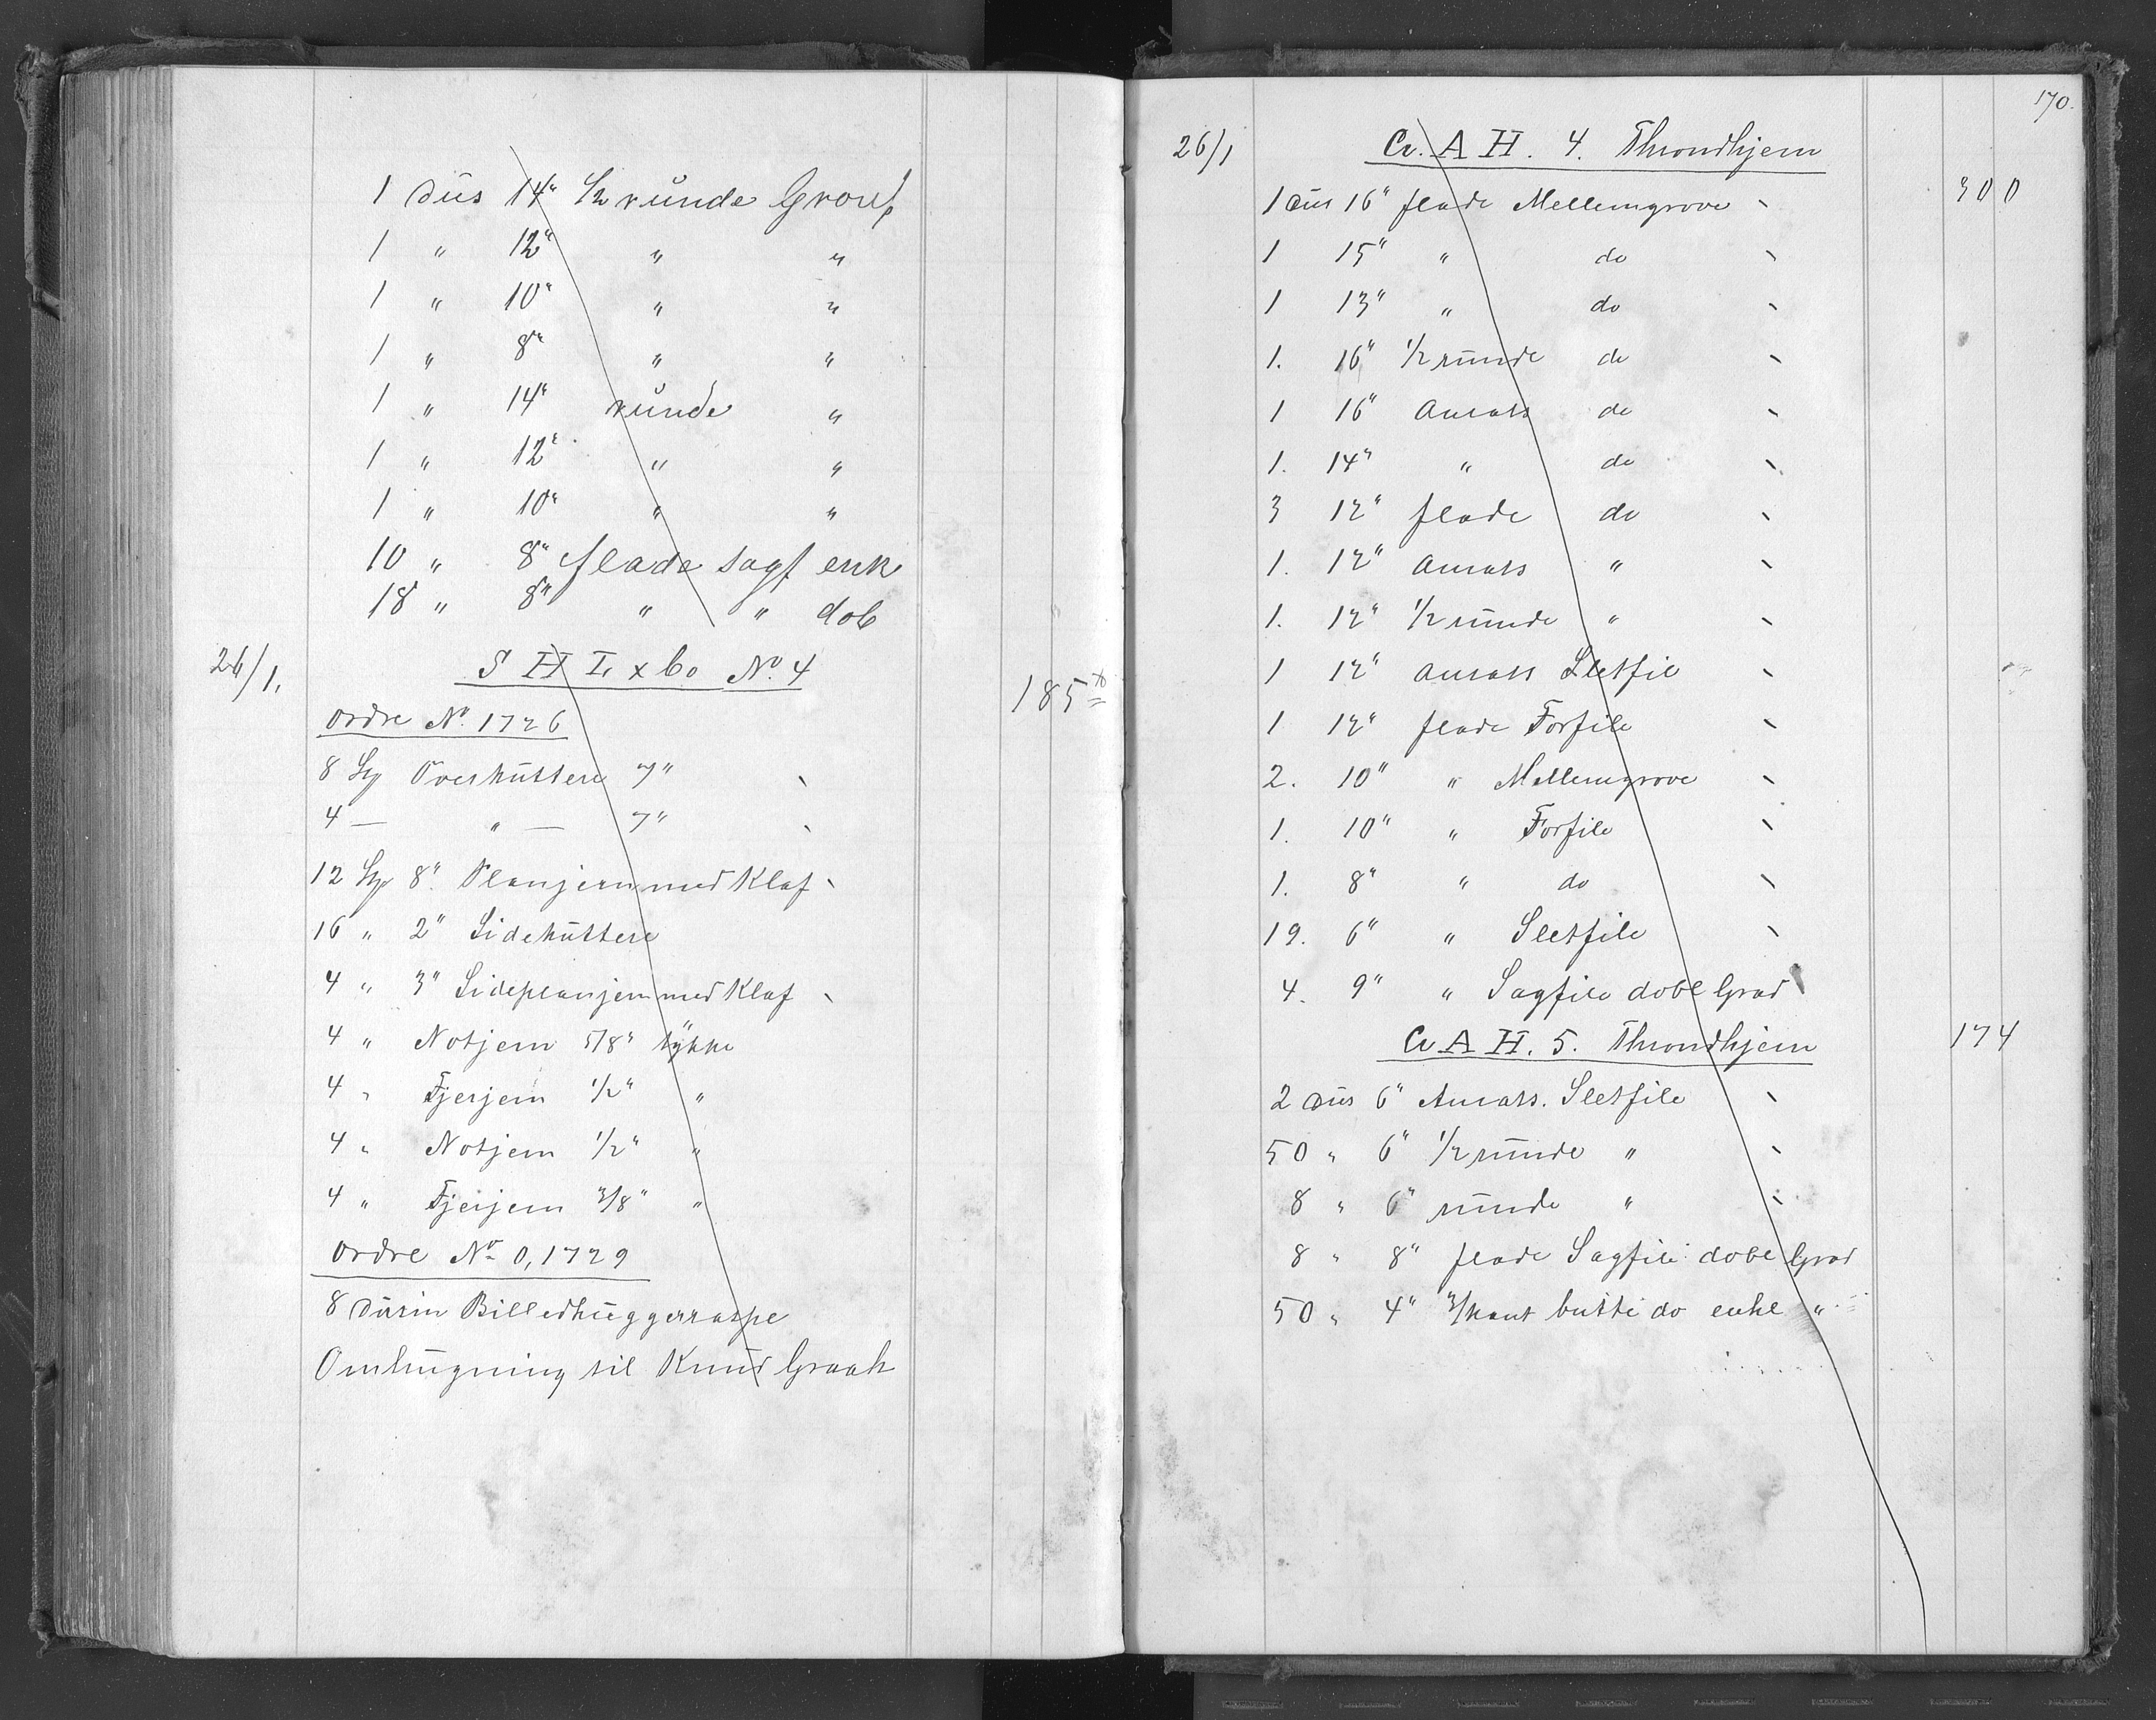 1 Dūs 14" ½ runde Grovf
1 " 12" " "
1 " 10" " "
1 " 8" " "
1 " 14" runde "
1 " 12" " "
1 " 10" " "
10 " 8" flade sagf enk
18 " 8" " " dob
26/1. S H L x Co No. 4 185
Ordre No. 1726
8 St Overkuttere 7"
4 — " — 7"
12 St 8" Planjern med Klaf
16 " 2" Sidekuttere
4 " 3" Sideplanjern med Klaf
4 " Notjern 5/8" tykke
4 " Fjerjern 1/2" "
4 " Notjern 1/2" "
4 " Fjerjern 3/8" "
Ordre No 0,1729
8 Dusin Billedhuggerraspe
Omhugning til Knud Graah
170.
26/1 A H. 4. Throndhjem
1 Dus 16" flade Mellemgrove 300
1 15" " do
1 13" " do
1. 16" 1/2 runde do
1 16" Ansats do
1. 14" " do
3 12" flade do
1. 12" Ansats "
1. 12" 1/2 runde "
1 12" Ansats Sletfil
1 12" flade Forfile
2. 10" " Mellemgrove
1. 10" " Forfile
1. 8" " do
19. 6" " Sletfile
4. 9" " Sagfile dobl Grad
A H. 5. Throndhjem 174
2 Dus 6" Ansats. Sletfile
50 " 6" 1/2 runde "
8 " 6" runde "
8 " 8" flade Sagfile dobl Grad
50 " 4" 3/kant butte do enkl "